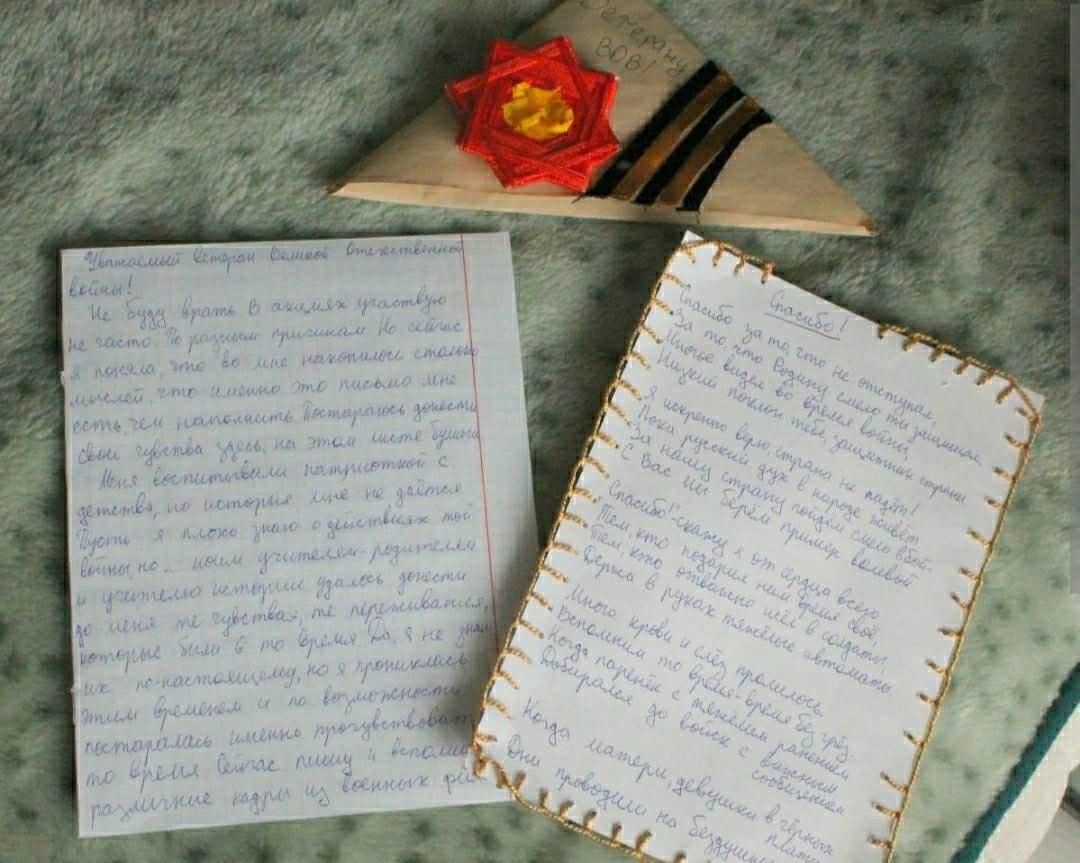 Ветерану
ВОВ!
Уважаемый ветеран Великой Отечественной
войны!
Не буду врать. В акциях участвую
не часто. По разным причинам. Но сейчас
я поняла, что во мне накопилось столько
мыслей, что именно это письмо мне
есть, чем наполнить. Постараюсь донести
свои чувства здесь, на этом листе бумаги
Меня воспитывали патриоткой с
детства, но история мне не даётся
Пусть я плохо знаю о действиях той
войны, но моим учителем-родителям
и учителю истории удалось донести
до меня те чувства, те переживания,
которые были в то время. Да, я не знаю
их по-настоящему, но я прониклась
этим временем и по возможности
постаралась именно прочувствовать
то время. Сейчас пишу и вспоми
различные кадры из военных фил
Спасибо!
Спасибо за то, что не отступал,
За то, что Родину смело ты защищал
Многое видел во время войны,
Низкий поклон тебе, защитник страны
Я искренно верю, страна не падёт!
Пока русский дух в народе живёт
За нашу страну пойдём смело в бой-
С Вас мы берём пример волевой
"Спасибо!"-скажу я от сердца всего
Тем, кто подарил нам время своё,
Тем, кто отважно шёл в солдаты,
Держа в руках тяжёлые автоматы
Много крови и слёз пролилось.
Вспомним то время-время без грёз.
Когда паренёк с тяжёлым ранением
Добирался до войск с важным
сообщением
Когда матери, девушки в чёрных
платк
Дни проводили на бездушн